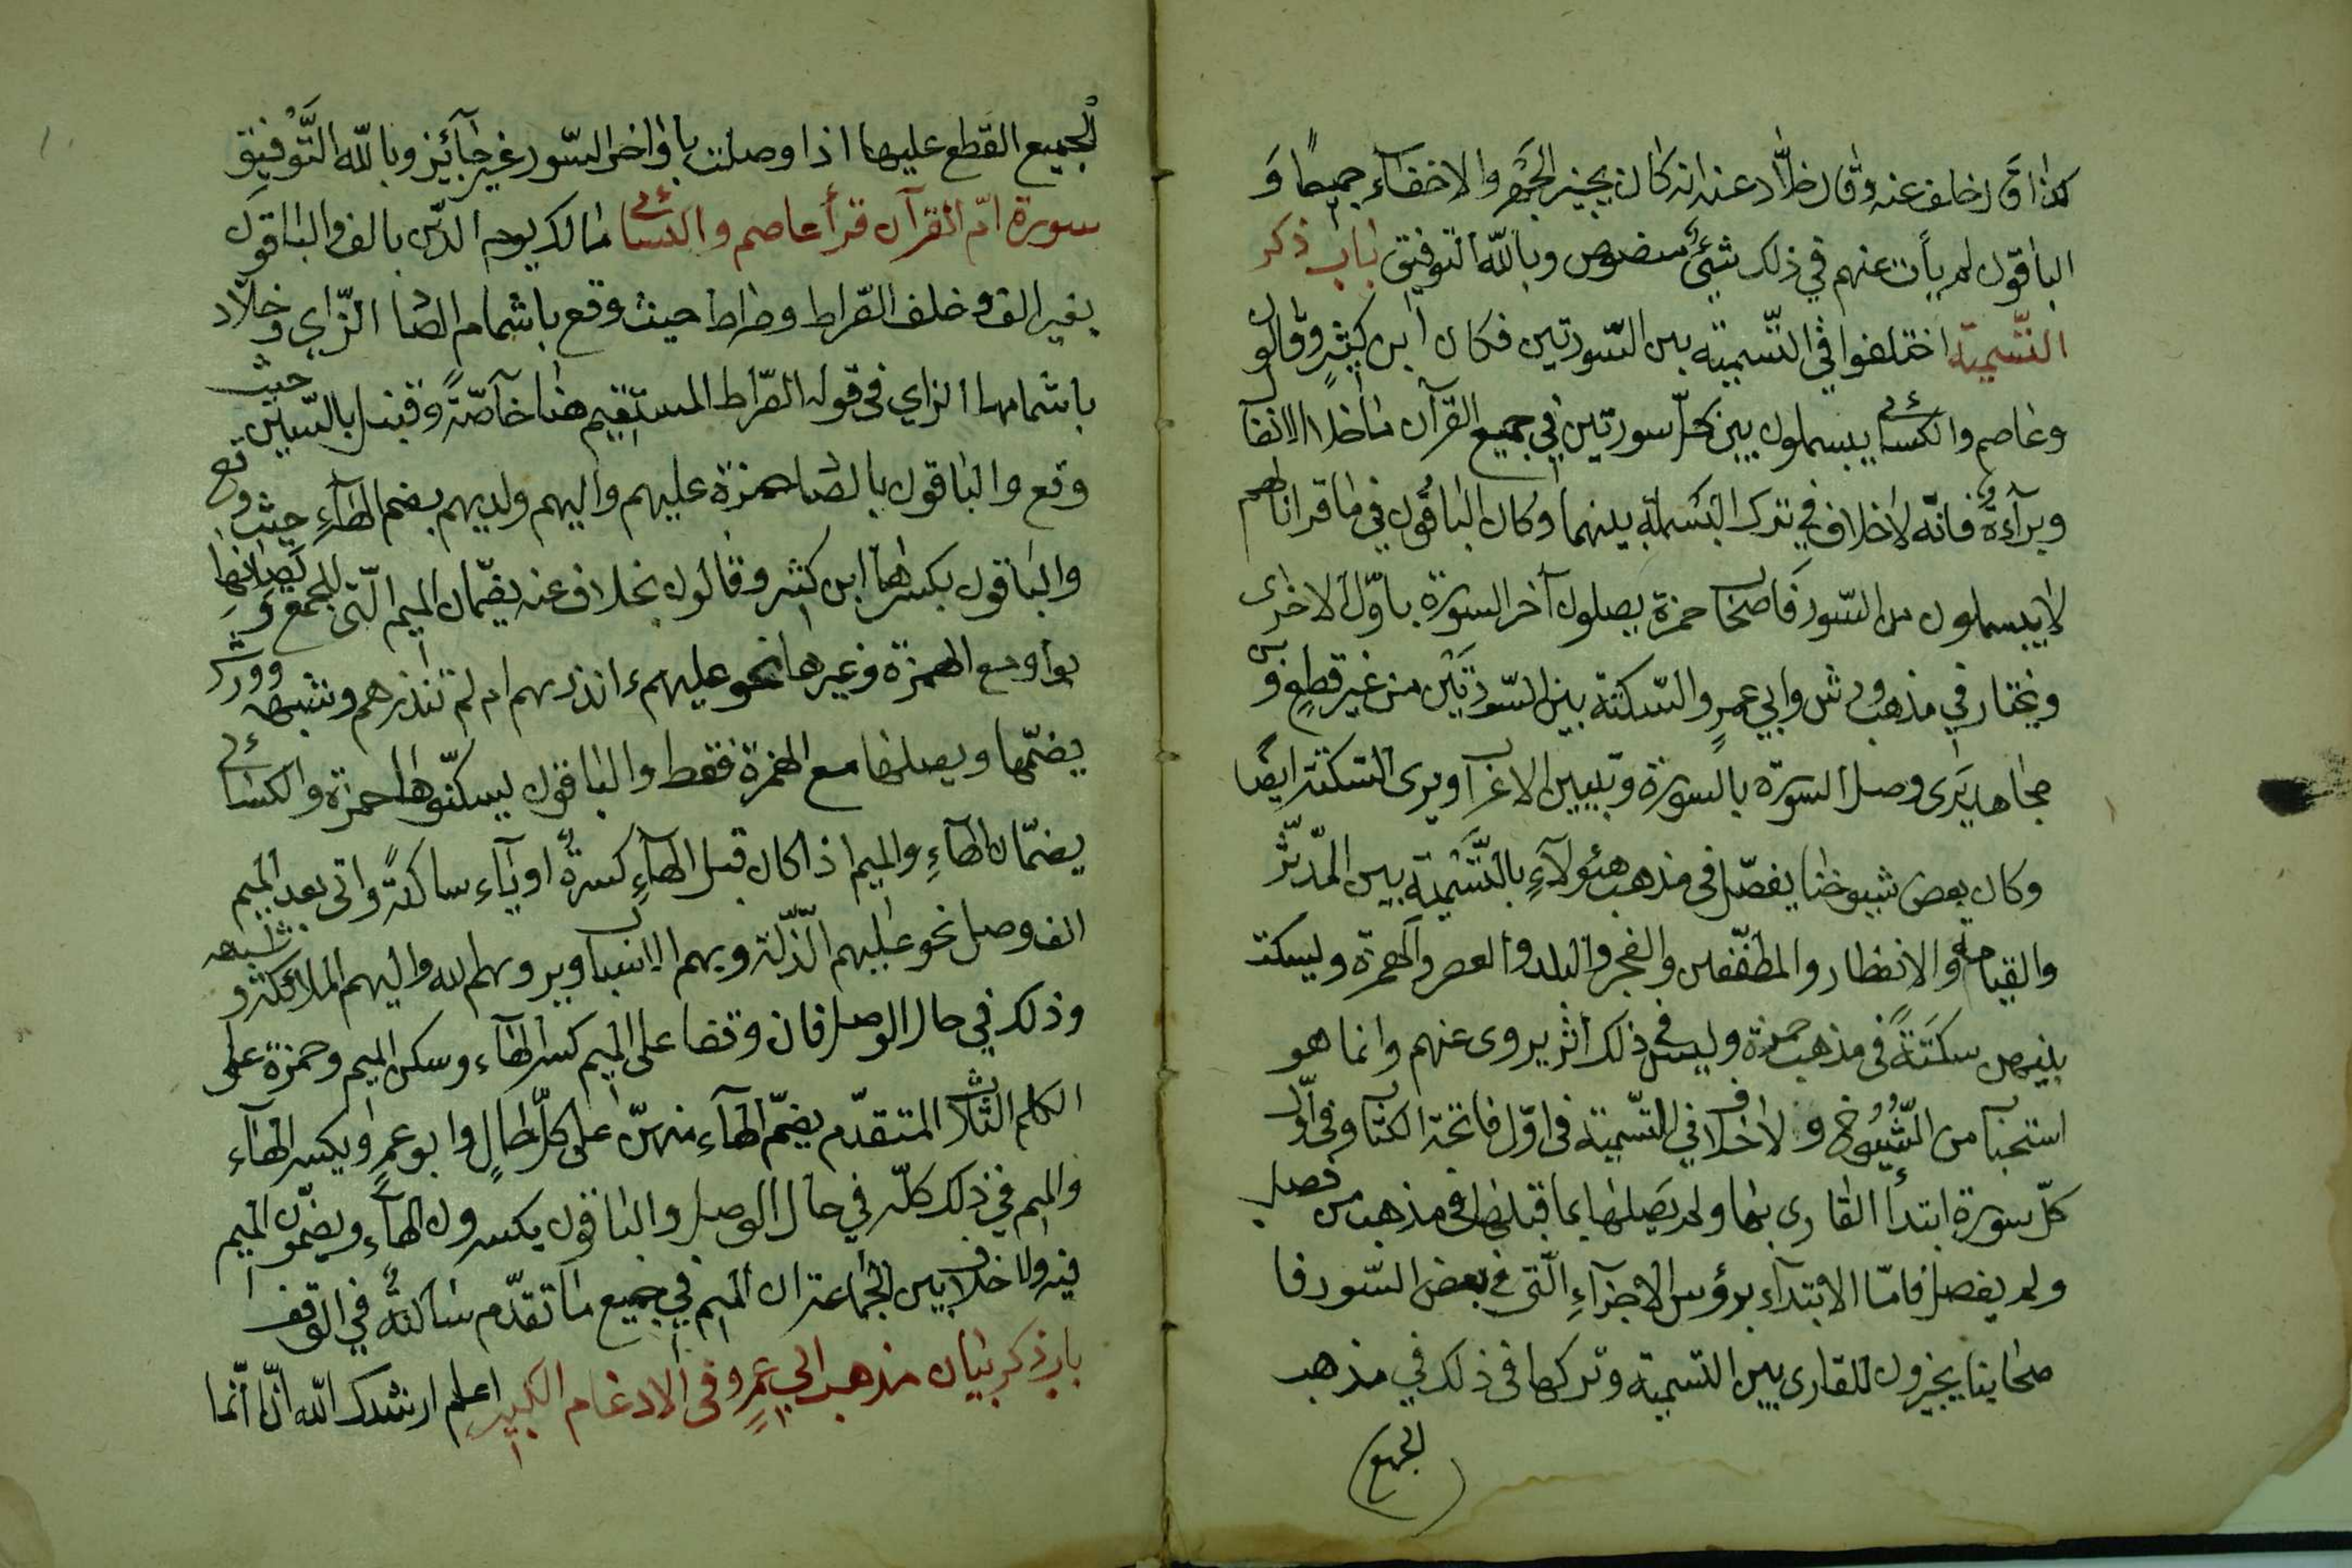 كذا قال خلف عنه وقال خلّاد عنه انه كان يجيز الجَهْر والاخفآء جميعًا وَ
الباقون لم يأت عنهم في ذلك شيئٌ منصوص وبالله التوفيق باب ذكر
التّسمية اختلفوا في التّسمية بين السّورتين فكان ابن كثيرٍ وقالون
وعاصم والكسائي يبسملون بين كلّ سورتين في جميع القرآن ما خلا الانفال
وبرآءةٌ فانّه لا خلاف في ترك البَسملة بينهما وكان الباقون في ما قرانا لهم
لا يبسملون بين السّور فَاصحاب حمزة يصلون آخر السورة باوّل الاخرى
ويختار في مذهب ورش وابي عمرٍو السّكتة بين السّورتَيْن من غير قطعٍ وابن
مجاهد يَرَى وصل السورة بالسورة وتبيين الاعراب ويرى السّكتة ايضًا
وكان بعض شيوخنا يفصّل في مذهب هئولآءِ بالتَّسْمية بين المدّثّر
والقيامة والانفطار والمطفّفين والفجر والبلد والعصر والهمزة ويسكت
بينهن سكتَةً في مذهب حمزة وليس في ذلك أثر يروى عنهم وانما هو
استحباب من الشُّيُوخ ولا خلاف في التّسمية في اوّل فاتحة الكتاب وفي اوّل
كلّ سورة ابتدأ القارى بها ولم يَصلها بما قبلها في مذهب من فصل
ولم يفصل فامّا الابتدآء برؤس الاجزآءِ الّتي في بعض السّور فا
صحابنا يخيرون للقارى بين التسمية وتركها في ذلك في مذهب
الجميع
الْجميع القطع عليها اذا وصلت باواخر السّور غير جآئيز وبالله التَّوْفيق
سورة امّ القرآن قرأ عاصم والكسائي مالك يوم الدّين بالف والباقون
بغير الف وخلف الصّراط وصراط حيث وقع باشمام الصاد الزّاي وخلّاد
باشمامها الزاي في قوله الصّراط المستقيم هنا خآصّةً وقنبل بالسّين حيث
وقع والباقون بالصاد حمزة عليهم واليهم ولديهم بضم الهآءِ حيث وقع
والباقون بكسرها ابن كثير وقالون بخلاف عنه يضمّان الميم الّتي للجمع وَيصلانها
بواو مع الهمزة وغيرها نحو عليهم ءانذرتهم ام لم تنذرهم وشبهه وورش
يضمّها ويصلها مع الهمزة فقط والباقون يسكنّوها حمزة والكسائي
يضمّان الهآءِ والميم اذا كان قبل الهآءِ كسرةٌ اويآء ساكنةً واتى بعد الميم
الف وصل نحو عليهم الّذّلّة وبهم الاسباب ويريهم الله واليهم الملائكة وشبهه
وذلك في حال الوصل فان وقفا على الميم كسرا الهآء وسكن الميم وحمزة على
الكلم الثلاث المتقدّم يضمّ الهآء منهنّ على كلّ حالٍ وابو عمرٍو يكسر الهآء
والميم في ذلك كلّه في حال الوصل والباقون يكسرون الهآءِ ويضمّون الميم
فيه ولا خلاف بين الجماعة ان الميم في جميع ما تقدّم ساكنةٌ في الوقف
باب ذكر بيان مذهب ابي عمرٍو في الادغام الكبير اعلم ارشدك الله انّا انّما